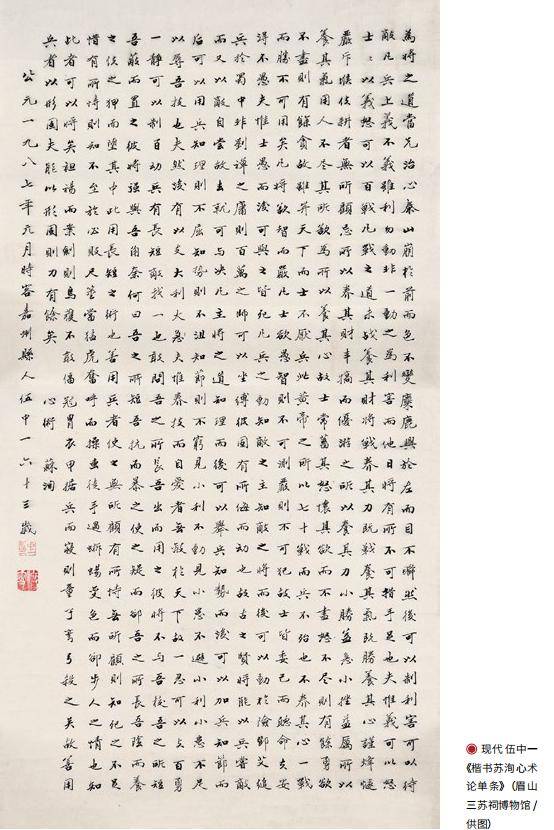 為將之道當先治心泰山崩於前而色不變麋鹿興於左而目不瞬然後可以制利害可以待
敵凡兵上義不義雖利勿動非一動之為利害而他日將有所不可措手足也夫惟義可以怒
士士以義怒可以百戰凡戰之道未戰養其財將戰養其力既戰養其氣既勝養其心謹烽燧
嚴斥堠使耕者無所顧忌所以養其財丰犒而優游之所以養其力小勝益急小挫益厲所以
養其氣用人不盡其所欲為所以養其心故士常蓄其怒懷其欲而不盡怒不盡則有餘勇欲
不盡則有餘貪故雖并天下而士不厭兵此黃帝之所以七十戰而兵不殆也不養其心一戰
而勝不可用矣凡將欲智而嚴凡士欲愚智則不可測嚴則不可犯故士皆委己而聽命夫安
得不愚夫惟士愚而後可與之皆死凡兵之動知敵之主知敵之將而後可以動於險鄧艾縋
兵於蜀中非劉禪之庸則百萬之師可以坐縛彼固有所侮而動也故古之賢將能以兵嘗敵
而又以敵自嘗故去就可以決凡主將之道知理而後可以舉兵知勢而後可以加兵知節而
后可以用兵知理則不屈知勢則不沮知節則不窮見小利不動見小患不避小利小患不足
以辱吾技也夫然後有以支大利大患夫惟養技而自愛者無敵於天下故一忍可以支百勇
一靜可以制百動兵有長短敵我一也敢問吾之所長吾出而用之彼將不与吾校吾之所短
吾蔽而置之彼將強與吾角奈何曰吾之所短吾抗而暴之使之疑而卻吾之所長吾陰而養
之使之狎而墮其中此用長短之術也善用兵者使之無所顧有所恃無所顧則知死之不足
惜有所恃則知不至於必敗尺箠當猛虎奮呼而操擊徒手遇蜥蜴變色而卻步人之情也知
此者可以將矣袒裼而案劍則烏獲不敢偪冠冑衣甲據兵而寢則童子彎弓殺之矣故善用
兵者以形固夫能以形固則力有餘矣 心術 蘇洵
公元一九八七年九月時客嘉州縣人伍中一六十三歲
现代 伍中一
《楷书苏洵心术
论单条》（眉山
三苏祠博物馆/
供图）